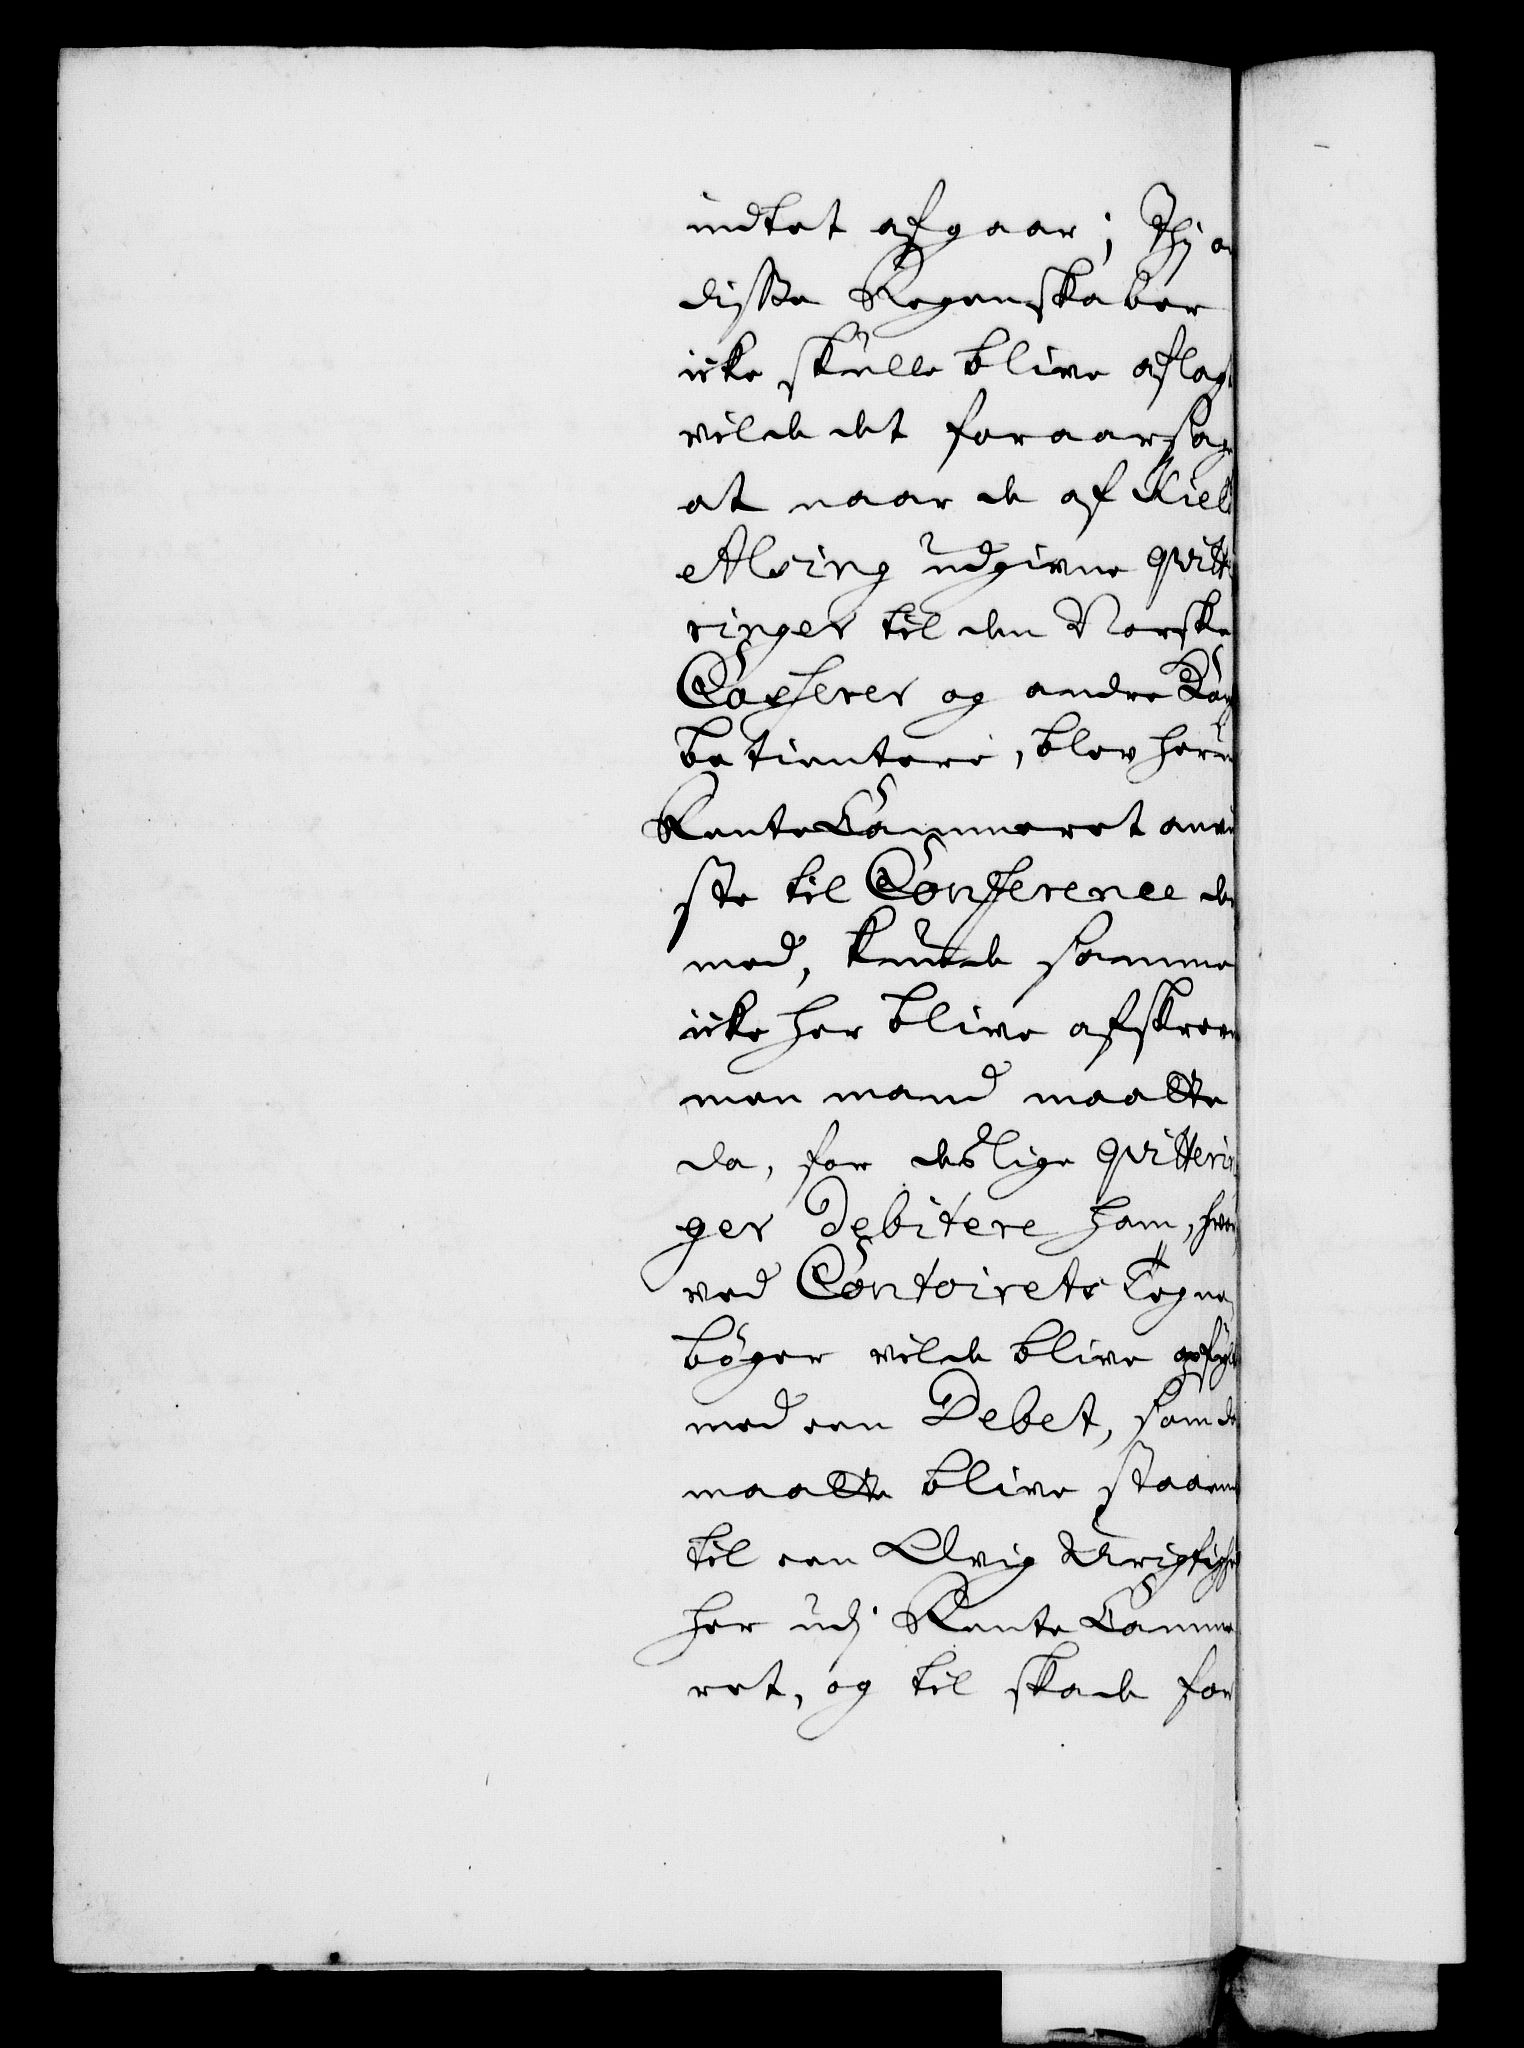 indtet afgaar; Thj om
disse Regenskaber
icke skulle blive aflagt
vilde det foraarsage
at naar de af Kield
Alsing udgivne qvitte
ringer til den Norske
Casserer og andre
betientere, blev her
RenteCammeret anvi
ste til Conference der
med, kunde samme
icke her blive afskreven
men mand maatte
da, for deslige qvitterin
ger Debitere ham, hvor
ved Contoirets Tegne
böger vilde blive opfyldt
med een Debet, som da
maatte blive staaende
til een Elvig Urigtighed
her udj Rente Camme
ret, og til skade for